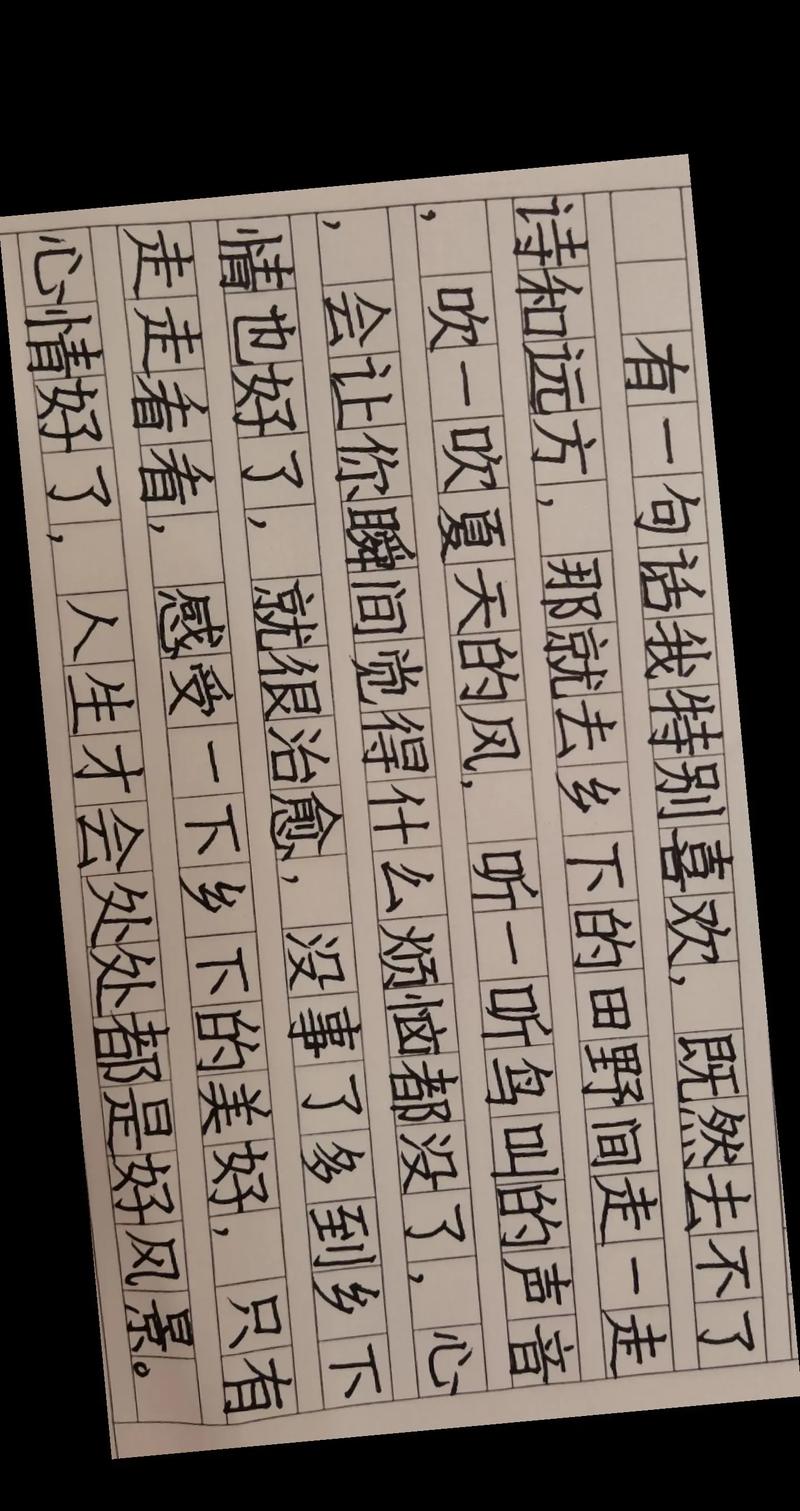 有一句话我特别喜欢，既然去不了
诗和远方，那就去乡下的田野间走一走
，吹一吹夏天的风，听一听鸟叫的声音
，会让你瞬间觉得什么烦恼都没了，心
情也好了，就很治愈，没事了多到乡下
走走看看，感受一下乡下的美好，只有
心情好了，人生才会处处都是好风景。